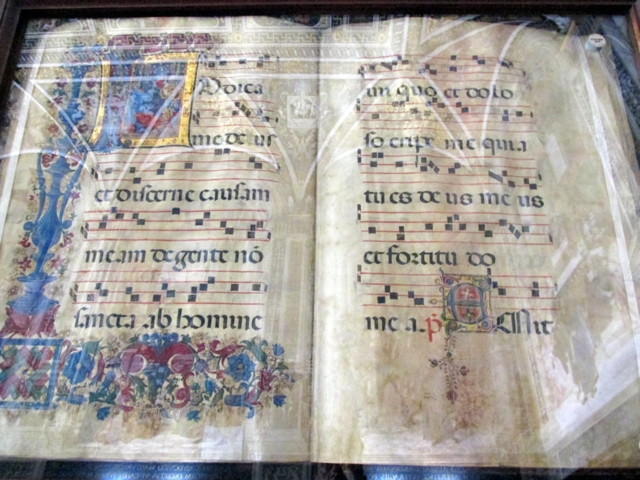 udica
me de us
et discerne causam
me am de gente nō
sancta ab homine
in quo et dolo
so eripe me quia
tu es de us me us
et fortitu do
me a. p̄ Emit